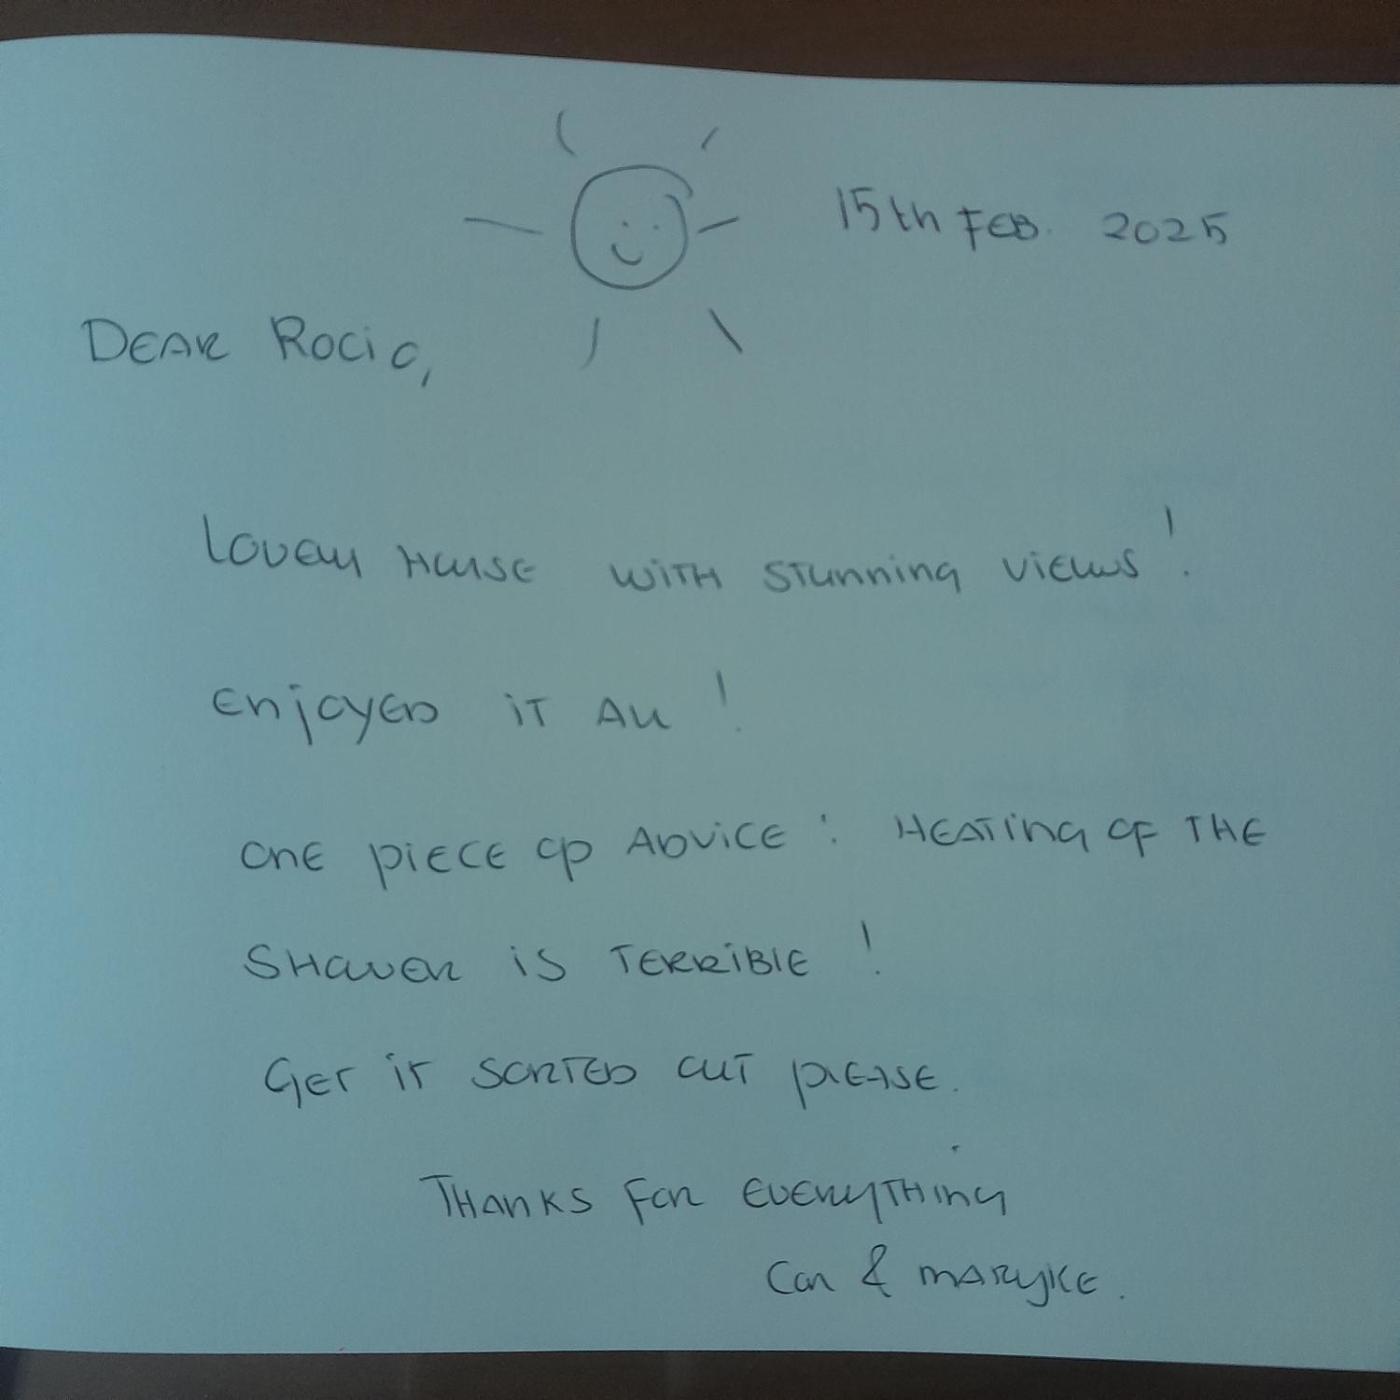 15th FEB. 2025
DEAR ROCIO,
LOVELY HOUSE WITH STUNNING VIEWS!
ENJOYED IT ALL!
ONE PIECE OF ADVICE: HEATING OF THE
SHOWER IS TERRIBLE!
GET IT SORTED OUT PLEASE.
THANKS FOR EVERYTHING
COR & MARYKE.